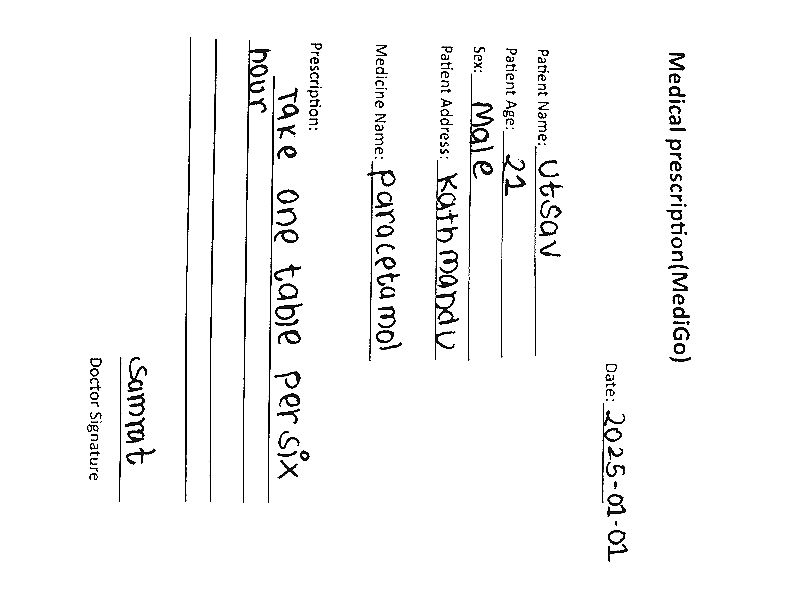 Medical prescription(MediGo)
Date: 2025-01-01
Patient Name: Utsav
Patient Age: 22
Sex: Male
Patient Address: Kathmandu
Medicine Name: paracetamol
Prescription:
Take one table per six
hour
Sammat
Doctor Signature